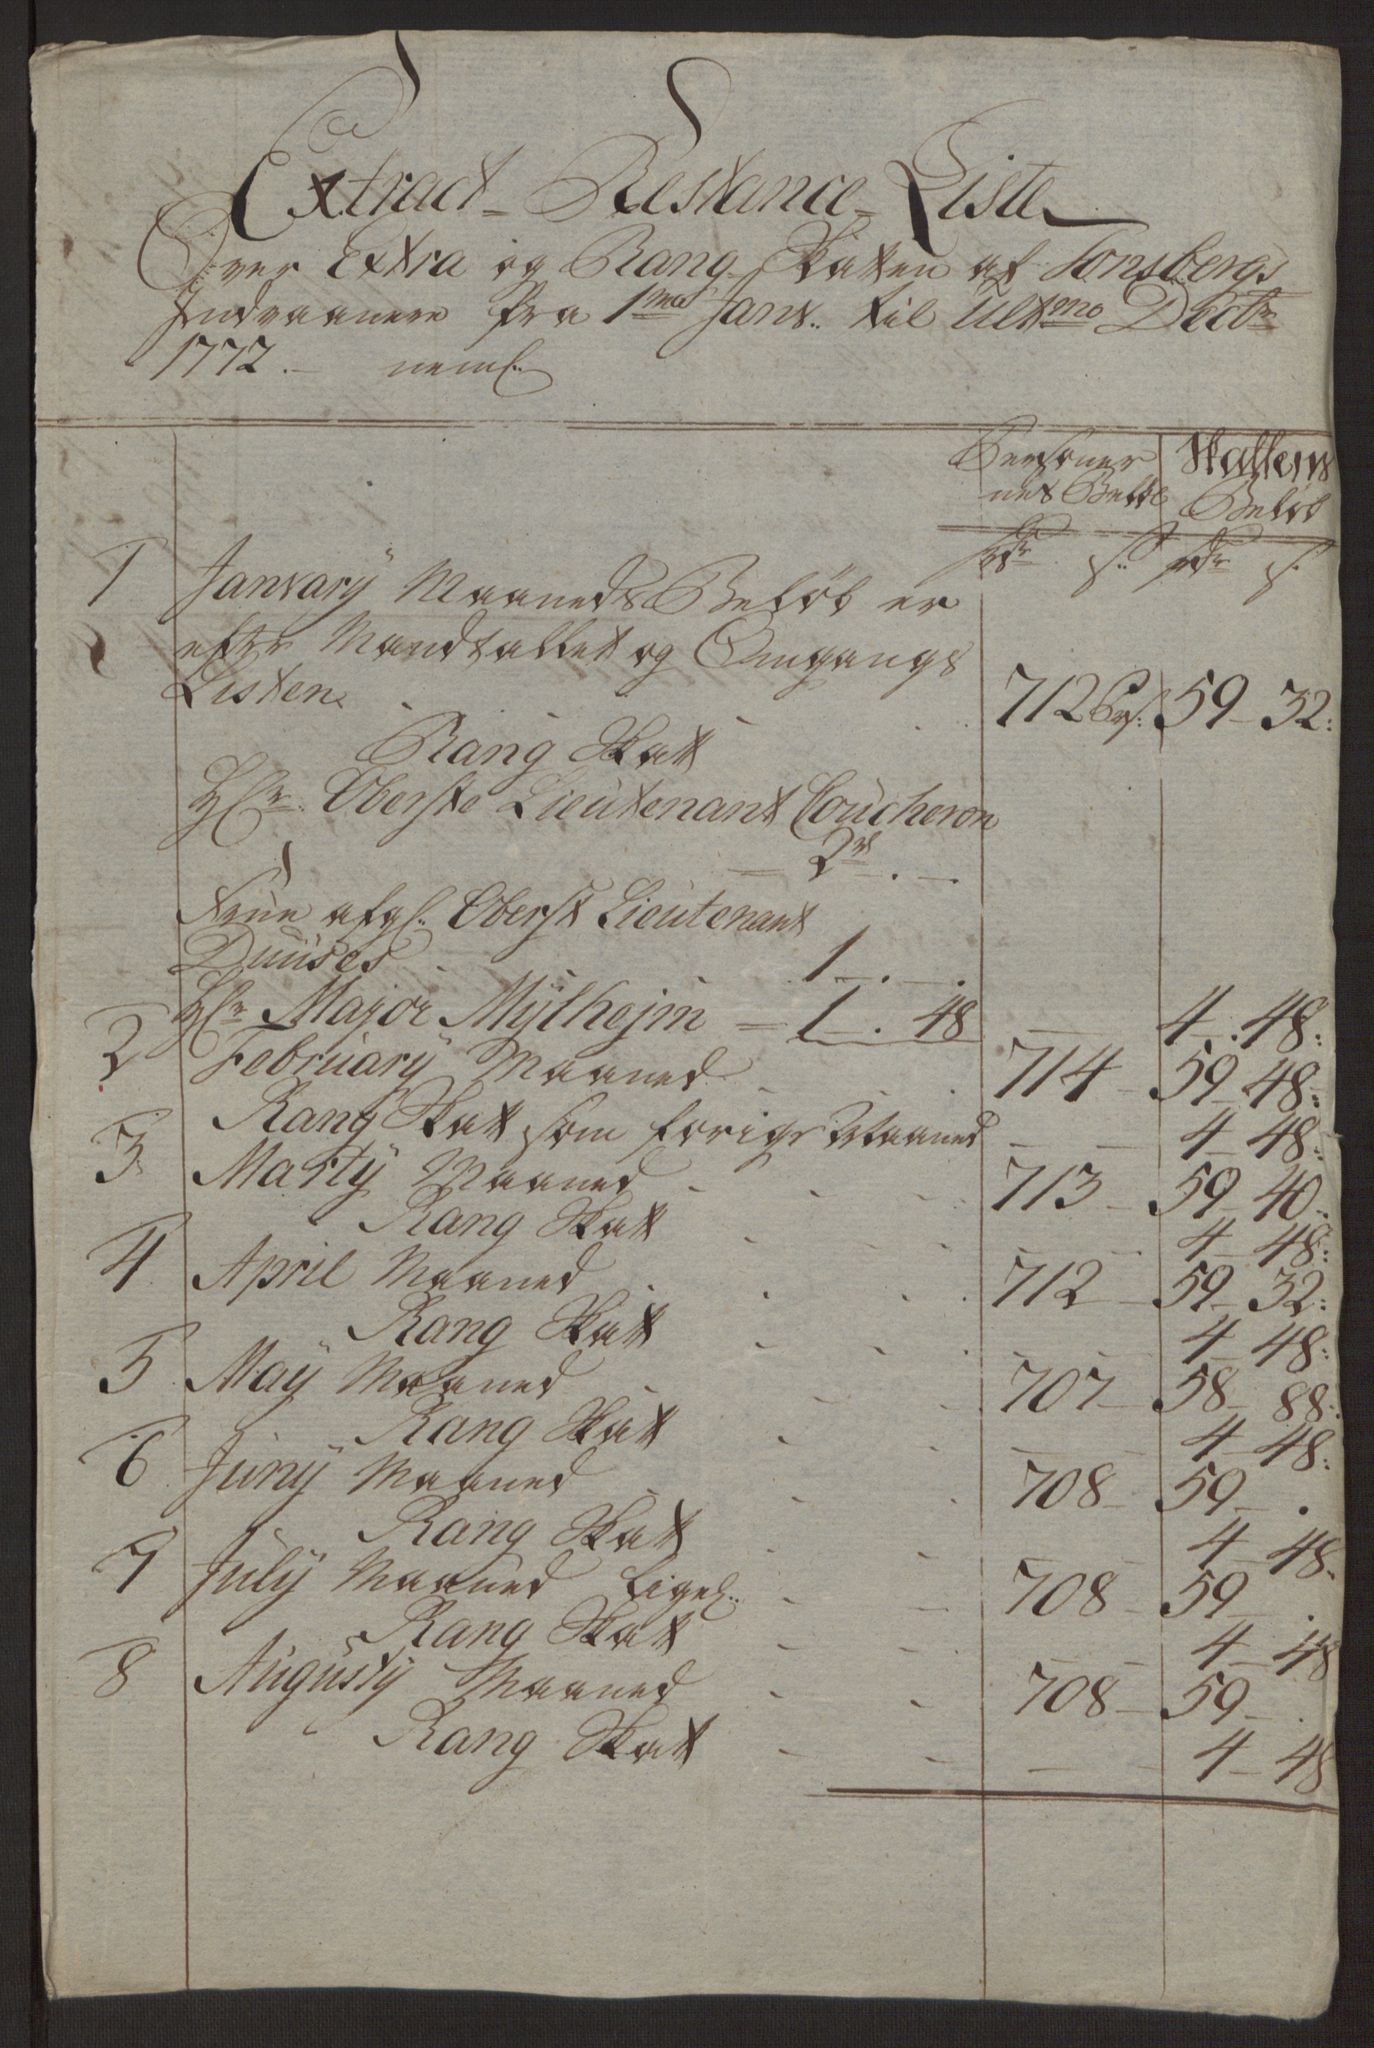 Extract Restance Liste
Over Extra og Rang Skatten af Tonsbergs
Indvaanere fra 1mo Janv. til Ultmo Decbr
1772. neml.
Personer Skattens
nes Beløb Beløb
rdr s. rdr s.
1 January Maaneds Beløb er
efter Mandtallet og Omgangs
Listen 712 Pers. 59 - 32:
Rang Skatt
Hr. Oberste Lieutenant Coucheron
2rd . -
Frue afgl. Oberst Lieutenant
Duuses 1 - . -
Hr Major Mylhejm - 1 . 48 4 - 48:
2 February Maaned 714 - 59 - 48:
Rang Skatt som forige Maaned 4 - 48:
3 Marty Maaned 713 - 59 - 40.
Rang Skatt 4 - 48:
4 April Maaned 712 - 59 - 32:
Rang Skatt 4 - 48:
5 May Maaned 707 - 58 - 88:
Rang Skatt 4 - 48:
6 Juny Maaned 708 - 59 - .
Rang Skatt 4 - 48:
7 July Maaned ligel. 708 - 59 - .
Rang Skatt 4 - 48
8 Augusty Maaned 708 - 59 - .
Rang Skatt 4 - 48